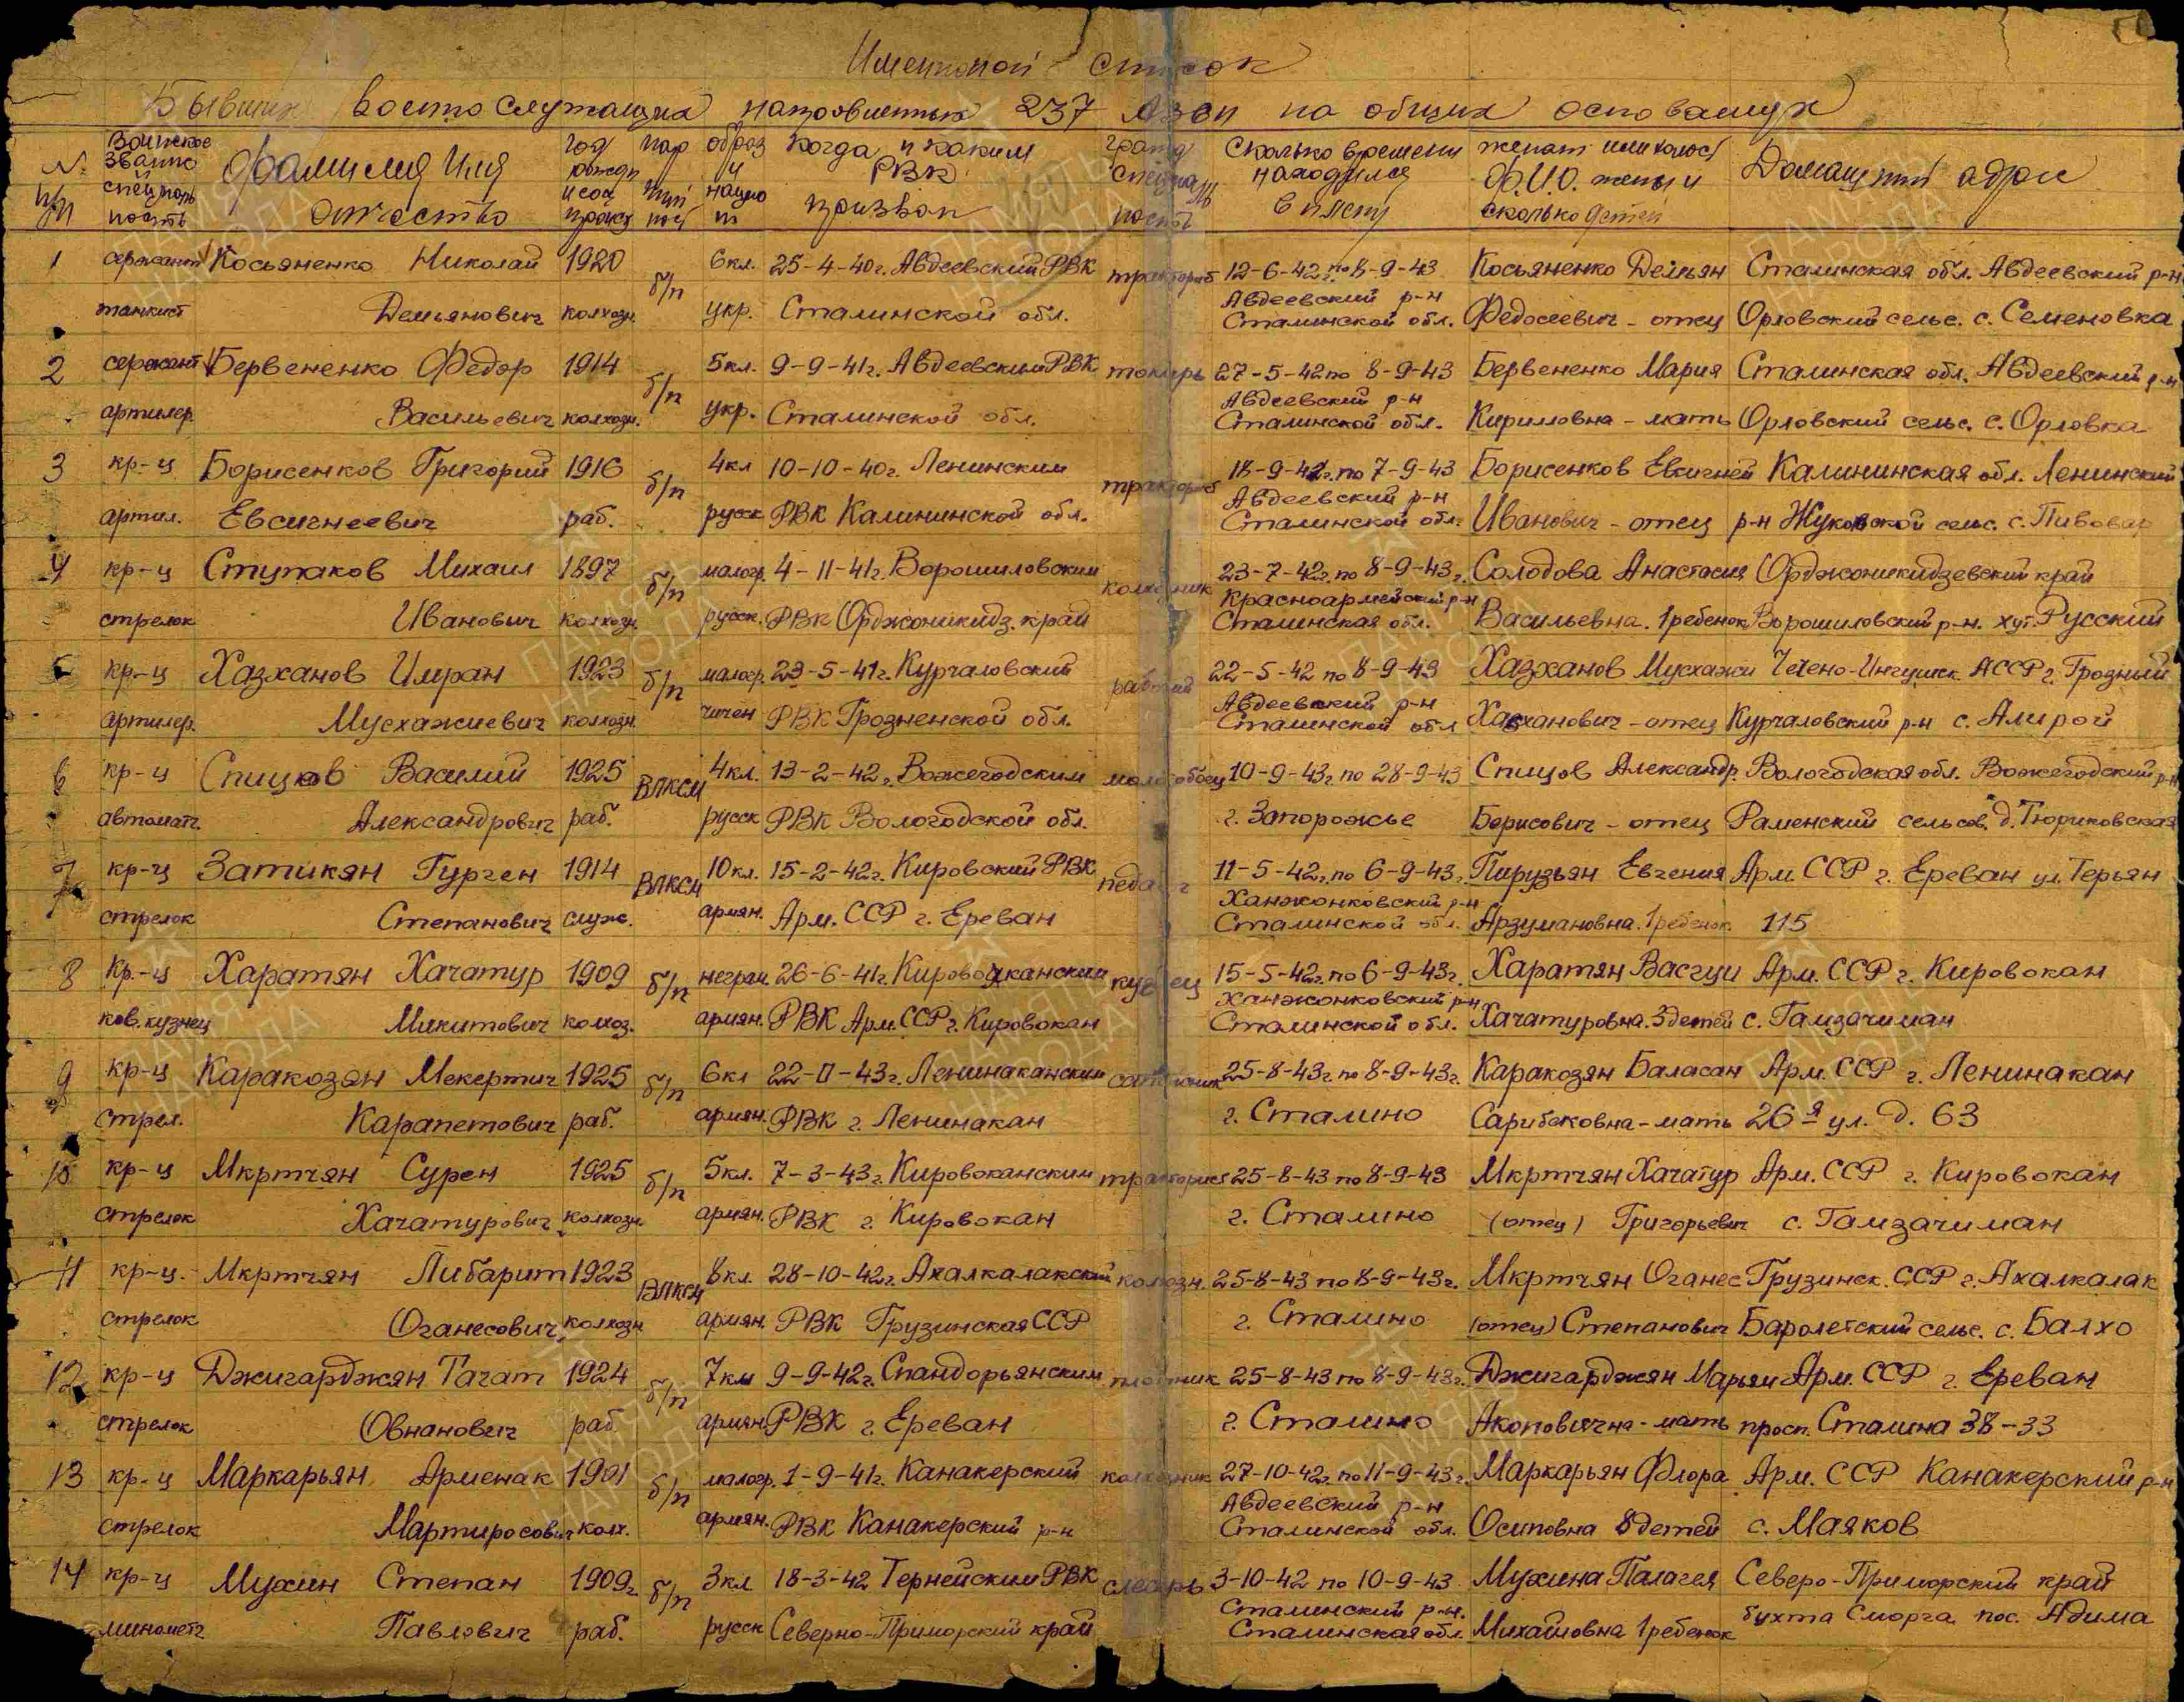 Именной список
Бывших военнослужащих направленных 237 АЗСП на общих основаниях
№ п/п Воинское звание и специальность Фамилия Имя Отчество год рожден и соц. происх партийность образ и нацио н когда и каким РВК призван гражд специальность Сколько времени находился в плену женат или холост Ф.И.О. жены и сколько детей Домашний адрес
1 сержант Косьяненко Николай 1920 б/п 6кл. 25-4-40г. Авдеевский РВК тракторист 12-6-42г. по 8-9-43 Косьяненко Демьян Сталинская обл. Авдеевский р-н
танкист Демьянович колхозн. укр. Сталинской обл. Авдеевский р-н Сталинской обл. Федосеевич - отец Орловский сельс. с. Семеновка
2 сержант Бервененко Федор 1914 б/п 5кл. 9-9-41г. Авдеевским РВК токарь 27-5-42 по 8-9-43 Бервененко Мария Сталинская обл. Авдеевский р-н
артилер. Васильевич колхозн. укр. Сталинской обл. Авдеевский р-н Сталинской обл. Кириловна - мать Орловский сельс. с. Орловка
3 кр-ц Борисенков Григорий 1916 б/п 4кл 10-10-40г. Ленинским тракторист 18-9-42г. по 7-9-43 Борисенков Евсигней Калининская обл. Ленинский
артил. Евсигнеевич раб. русск РВК Калининской обл. Авдеевский р-н Сталинской обл. Иванович - отец р-н Жуковской сельс. с. Пивовар
4 кр-ц Ступаков Михаил 1897 б/п малогр. 4-11-41г. Ворошиловским колхозник 23-7-42г. по 8-9-43г. Солодова Анастасия Орджоникидзевский край
стрелок Иванович колхозн. русск. РВК Орджоникидз. край Красноармейский р-н Сталинская обл. Васильевна. 1 ребенок Ворошиловский р-н. хут. Русский
5 кр-ц Хазханов Имран 1923 б/п малогр. 23-5-41г. Курчаловский рабочий 22-5-42 по 8-9-43 Хазханов Мусхажи Чечено-Ингушск. АССР г. Грозный
артилер. Мусхажиевич колхозн. чичен РВК Грозненской обл. Авдеевский р-н Сталинской обл Хазханович - отец Курчаловский р-н с. Алирой
6 кр-ц Спицов Василий 1925 ВЛКСМ 4кл. 13-2-42г. Вожегодским молотобоец 10-9-43г. по 28-9-43 Спицов Александр Вологодская обл. Вожегодский р-н
автомат. Александрович раб. русск РВК Вологодской обл. г. Запорожье Борисович - отец Раменский сельсов. д. Тюриковская
7 кр-ц Затикян Гурген 1914 ВЛКСМ 10кл. 15-2-42г. Кировский РВК педагог 11-5-42г. по 6-9-43г. Пирузьян Евгения Арм. ССР г. Ереван ул. Терьян
стрелок Степанович служ. армян. Арм. ССР г. Ереван Ханжонковский р-н Сталинской обл. Арзумановна. 1 ребенок 115
8 кр-ц Харатян Хачатур 1909 б/п неграм. 26-6-41г. Кировоканским кузнец 15-5-42г. по 6-9-43г. Харатян Васгуи Арм. ССР г. Кировокан
ков. кузнец Микитович колхоз. армян. РВК Арм. ССР г. Кировокан Ханжонковский р-н Сталинской обл. Хачатуровна. 3 детей с. Гамзачиман
9 кр-ц Каракозян Мекертич 1925 б/п 6кл 22-II-43г. Ленинаканским 25-8-43г. по 8-9-43г. Каракозян Баласан Арм. ССР г. Ленинакан
стрел. Карапетович раб. армян. РВК г. Ленинакан г. Сталино Сарибековна - мать 26я ул. д. 63
10 кр-ц Мкртчян Сурен 1925 б/п 5кл. 7-3-43г. Кировоканским тракторист 25-8-43 по 8-9-43 Мкртчян Хачатур Арм. ССР г. Кировокан
стрелок Хачатурович колхозн. армян. РВК г. Кировокан г. Сталино (отец) Григорьевич с. Гамзачиман
11 кр-ц. Мкртчян Либарит 1923 ВЛКСМ 8кл. 28-10-42г. Ахалкалакский колхозн. 25-8-43 по 8-9-43г. Мкртчян Оганес Грузинск. ССР г. Ахалкалак
стрелок Оганесович колхозн армян. РВК Грузинская ССР г. Сталино (отец) Степанович Баролетский сельс. с. Балхо
12 кр-ц Джигарджян Тачат 1924 б/п 7кл 9-9-42г. Спандорьянским плотник 25-8-43 по 8-9-43г. Джигарджян Марьям Арм. ССР г. Ереван
стрелок Овнанович раб. армян. РВК г. Ереван г. Сталино Акоповична - мать просп. Сталина 38-33
13 кр-ц Маркарьян Арменак 1901 б/п малогр. 1-9-41г. Канакерский колхозник 27-10-42г. по 11-9-43г. Маркарьян Флора Арм. ССР Канакерский р-н
стрелок Мартиросович колх. армян. РВК Канакерский р-н Авдеевский р-н Сталинской обл. Осиповна 8 детей с. Маяков
14 кр-ц Мухин Степан 1909г. б/п 3кл 18-3-42 Тернейским РВК слесарь 3-10-42 по 10-9-43 Мухина Палагея Северо-Приморский край
минометч Павлович раб. русск Северно-Приморский край Сталинский р-н. Сталинская обл. Михайловна 1 ребенок бухта Сиорга пос. Адима